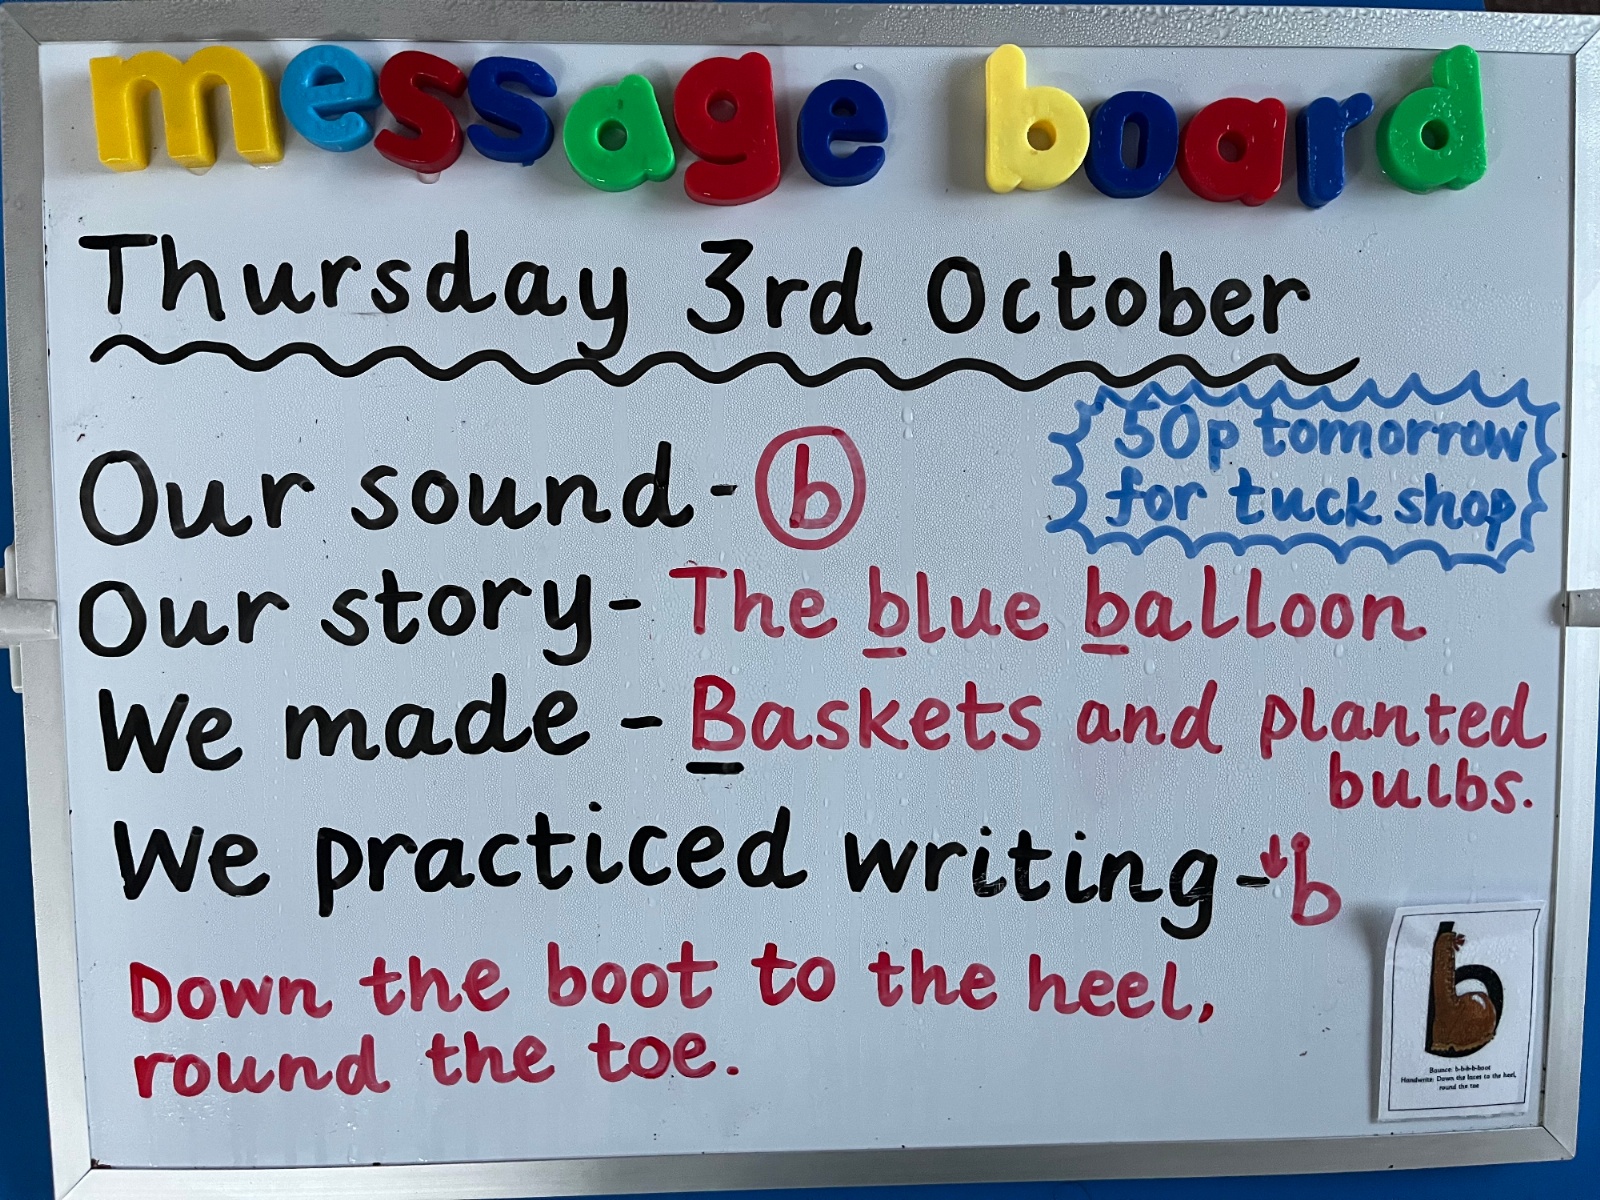 message board
Thursday 3rd October
50p tomorrow
for tuck shop
Our sound - b
Our story - The blue balloon
We made - Baskets and planted
bulbs.
We practiced writing - b
Down the boot to the heel,
round the toe.
b
Bounce: b-b-b-b-boot
Handwrite: Down the laces to the heel,
round the toe